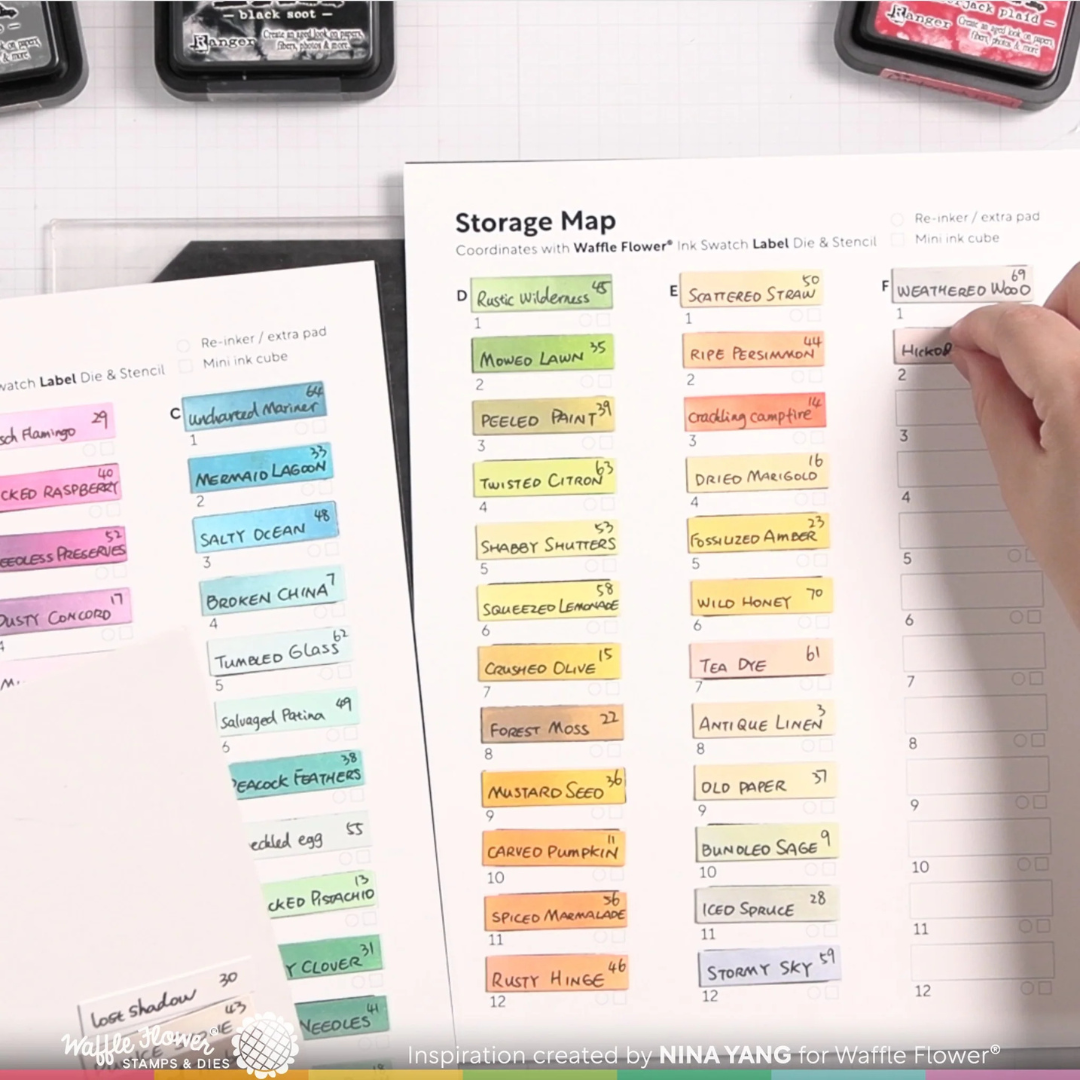 black soot
Ranger
Create an aged look on papers, fibers, photos & more.
jack plaid
Ranger
Create an aged look on papers, fibers, photos & more.
Storage Map
Coordinates with Waffle Flower® Ink Swatch Label Die & Stencil
Re-inker / extra pad
Mini ink cube
D
Rustic Wilderness 45
1
MOWED LAWN 35
2
PEELED PAINT 39
3
TWISTED CITRON 63
4
SHABBY SHUTTERS 53
5
SQUEEZED LEMONADE 58
6
CRUSHED OLIVE 15
7
FOREST MOSS 22
8
MUSTARD SEED 36
9
CARVED PUMPKIN 11
10
SPICED MARMALADE 56
11
RUSTY HINGE 46
12
E
SCATTERED STRAW 50
1
RIPE PERSIMMON 44
2
Crackling campfire 14
3
DRIED MARIGOLD 16
4
FOSSILIZED AMBER 23
5
WILD HONEY 70
6
TEA DYE 61
7
ANTIQUE LINEN 3
8
OLD PAPER 37
9
BUNDLED SAGE 9
10
ICED SPRUCE 28
11
STORMY SKY 59
12
F
WEATHERED WOOD 69
1
HICKO
2
3
4
5
6
7
8
9
10
11
12
watch Label Die & Stencil
Re-inker / extra pad
Mini ink cube
sch Flamingo 29
CKED RASPBERRY 40
EEDLESS PRESERVES 52
DUSTY CONCORD 17
C
uncharted Mariner 64
1
MERMAID LAGOON 33
2
SALTY OCEAN 48
3
BROKEN CHINA 7
4
TUMBLED GLASS 62
5
Salvaged Patina 49
6
PEACOCK FEATHERS 38
eckled egg 55
CKED PISTACHIO 13
Y CLOVER 31
NEEDLES 41
Lost shadow 30
43
Waffle Flower®
STAMPS & DIES
Inspiration created by NINA YANG for Waffle Flower®